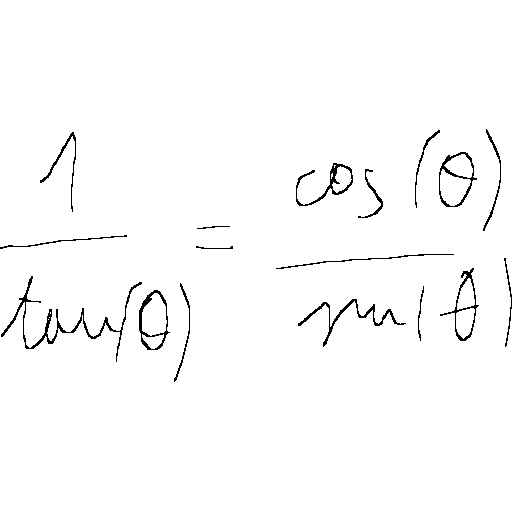 \frac{1}{\tan(\theta)} = \frac{\cos(\theta)}{\sin(\theta)}